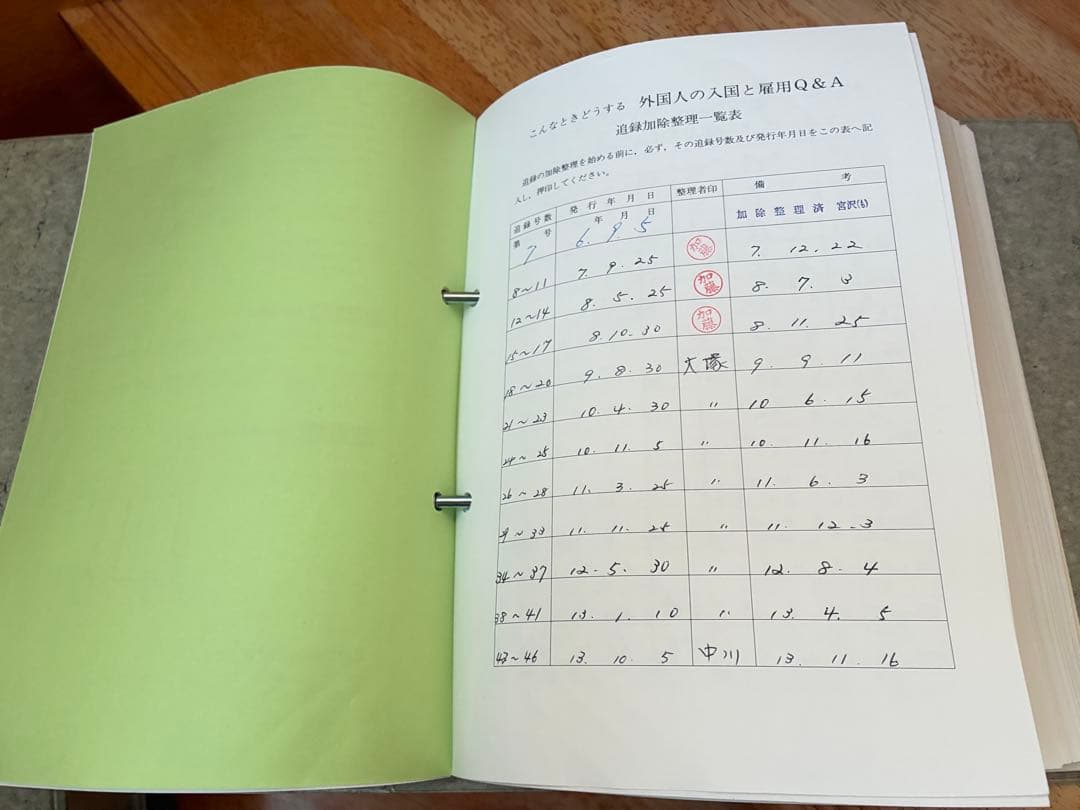 こんなときどうする 外国人の入国と雇用Q&A
追録加除整理一覧表
追録の加除整理を始める前に,必ず,その追録号数及び発行年月日をこの表へ記
入し,押印してください。
追録号数 発行年月日 整理者印 備考
第7号 6年9月5日 加除整理済 宮沢(も)
8~11 7. 9. 25 加藤 7. 12. 22
12~14 8. 5. 25 加藤 8. 7. 3
15~17 8. 10. 30 加藤 8. 11. 25
18~20 9. 8. 30 大塚 9. 9. 11
21~23 10. 4. 30 〃 10 6. 15
24~25 10. 11. 5 〃 10. 11. 16
26~28 11. 3. 25 〃 11. 6. 3
29~33 11. 11. 25 〃 11. 12. 3
34~37 12. 5. 30 〃 12. 8. 4
38~41 13. 1. 10 〃 13. 4. 5
43~46 13. 10. 5 中川 13. 11. 16